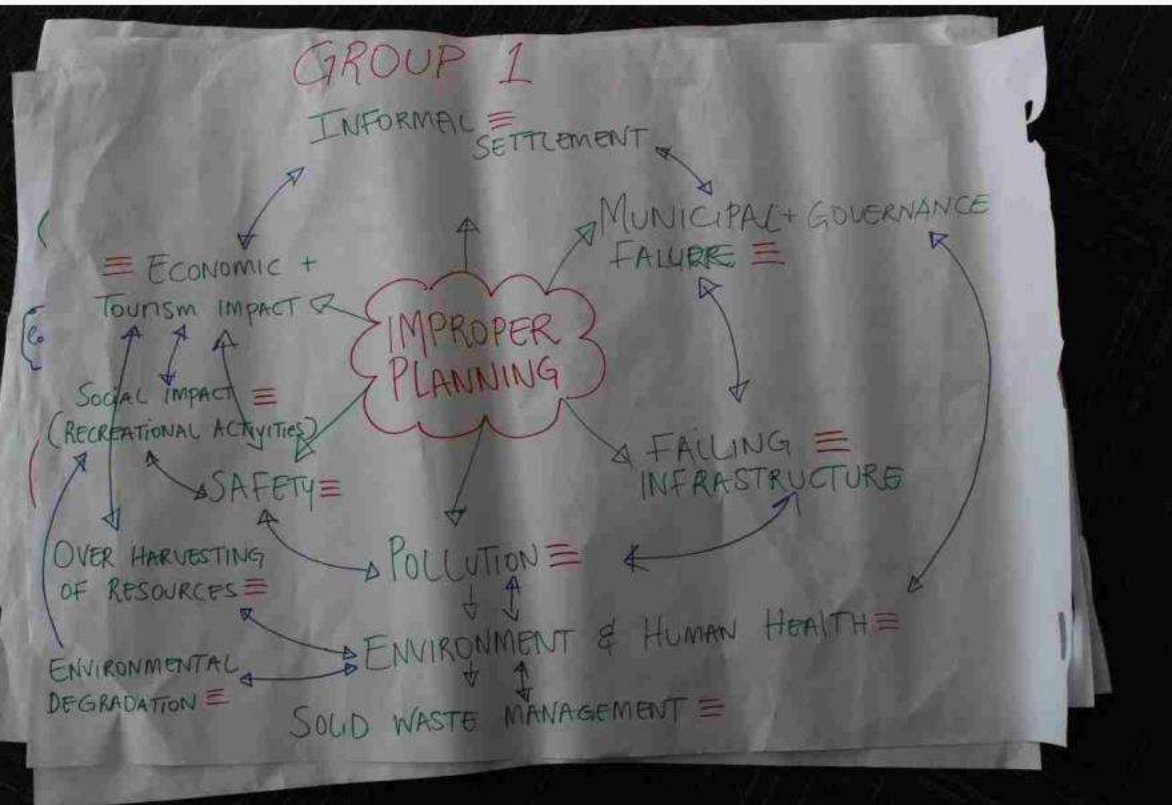 GROUP 1
INFORMAL
SETTLEMENT
MUNICIPAL + GOVERNANCE
FALURE
ECONOMIC +
TOURISM IMPACT
IMPROPER
PLANNING
SOCIAL IMPACT
(RECREATIONAL ACTIVITIES)
SAFETY
FAILING
INFRASTRUCTURE
OVER HARVESTING
OF RESOURCES
POLLUTION
ENVIRONMENT & HUMAN HEALTH
ENVIRONMENTAL
DEGRADATION
SOLID WASTE MANAGEMENT